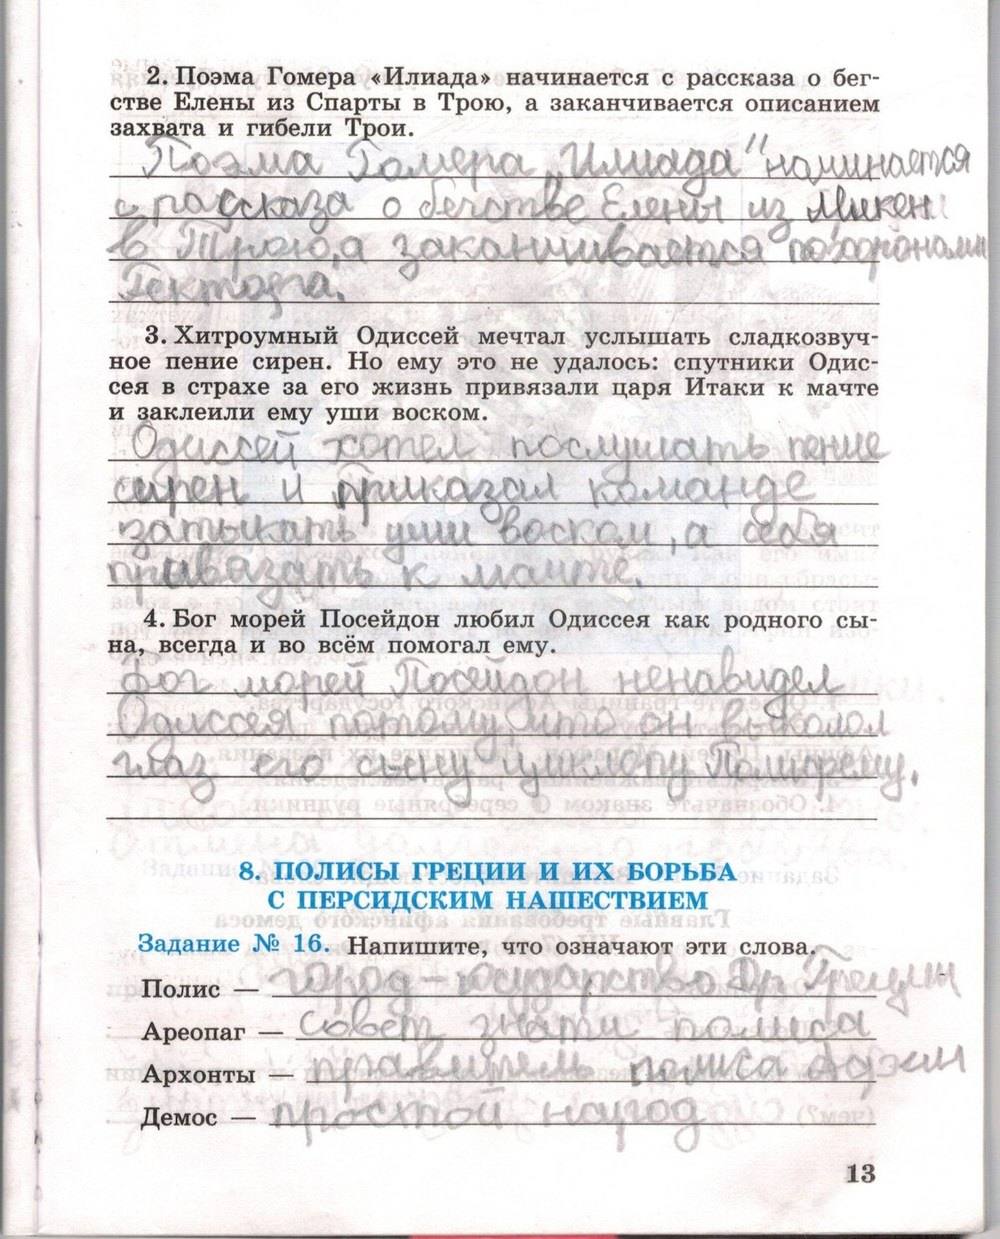 2. Поэма Гомера «Илиада» начинается с рассказа о бег-
стве Елены из Спарты в Трою, а заканчивается описанием
захвата и гибели Трои.
Поэма Гомера „Илиада" начинается
с рассказа о бегстве Елены из Микен
в Трою, а заканчивается похоронами
Гектора.
3. Хитроумный Одиссей мечтал услышать сладкозвуч-
ное пение сирен. Но ему это не удалось: спутники Одис-
сея в страхе за его жизнь привязали царя Итаки к мачте
и заклеили ему уши воском.
Одиссей хотел послушать пение
сирен и приказал команде
затыкать уши воском, а себя
привязать к мачте.
4. Бог морей Посейдон любил Одиссея как родного сы-
на, всегда и во всём помогал ему.
Бог морей Посейдон ненавидел
Одиссея потому что он выколол
глаз его сыну циклопу
8. ПОЛИСЫ ГРЕЦИИ И ИХ БОРЬБА
С ПЕРСИДСКИМ НАШЕСТВИЕМ
Задание № 16. Напишите, что означают эти слова.
Полис — город-государство Др. Греции
Ареопаг — совет знати полиса
Архонты — правители полиса Афин
Демос — простой народ
13